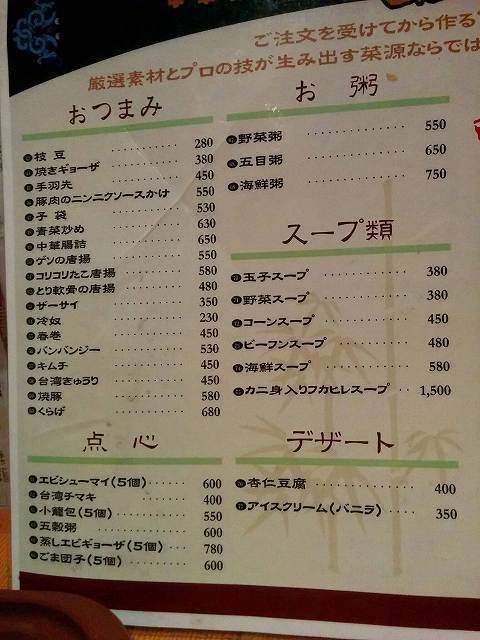 ご注文を受けてから作る
厳選素材とプロの技が生み出す菜源ならでは
おつまみ
枝豆 280
焼きギョーザ 380
手羽先 450
豚肉のニンニクソースかけ 550
子袋 530
青菜炒め 630
中華腸詰 650
ゲソの唐揚 550
コリコリたこ唐揚 580
とり軟骨の唐揚 480
ザーサイ 350
冷奴 230
春巻 450
バンバンジー 530
キムチ 450
台湾きゅうり 450
焼豚 580
くらげ 680
点心
エビシューマイ(5個) 600
台湾チマキ 400
小籠包(5個) 550
五穀粥 600
蒸しエビギョーザ(5個) 780
ごま団子(5個) 600
お粥
野菜粥 550
五目粥 650
海鮮粥 750
スープ類
玉子スープ 380
野菜スープ 380
コーンスープ 450
ビーフンスープ 480
海鮮スープ 580
カニ身入りフカヒレスープ 1,500
デザート
杏仁豆腐 400
アイスクリーム(バニラ) 350